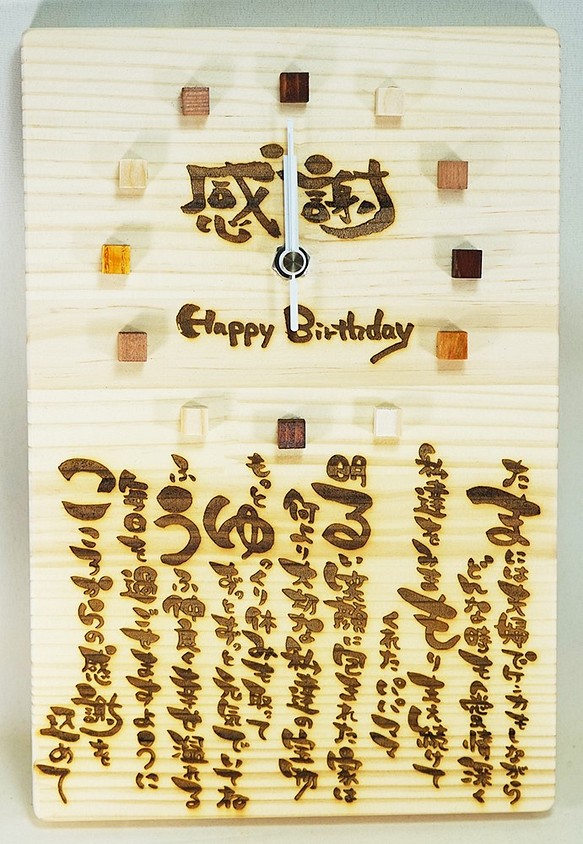 感謝
Happy Birthday
たまには夫婦でケンカをしながら
どんな時も愛情深く
私達をまもり支え続けて
くれたパパママ
明るい笑顔に包まれた家は
何より大切な私達の宝物
もっとゆっくり休みを取って
ずっとずっと元気でいてね
ふうふ仲良く幸せ溢れる
毎日を過ごせますように
こころからの感謝を
込めて